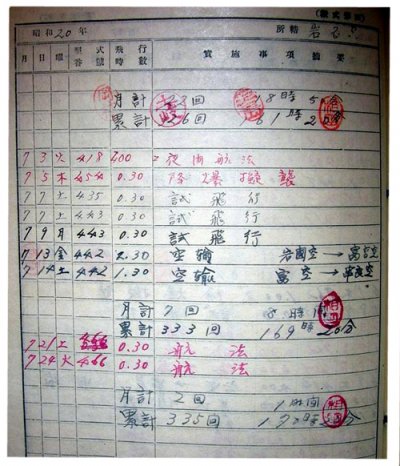 昭和20年 所轄
月 日 曜 型式番號 飛行時數 實施事項 摘要
月計 回 18時50分
累計 6回 161時20分
7 3 火 418 400 夜間航法
7 5 木 454 0.30 降爆擬襲
7 7 土 435 0.30 試飛行
7 7 土 443 0.30 試飛行
7 9 月 443 0.30 試飛行
7 13 金 442 2.30 空輸 岩国空→富高空
7 14 土 442 1.30 空輸 富空→串良空
月計 7回 8時
累計 333回 169時20分
7 21 土 0.30 航法
7 24 火 466 0.30 航法
月計 2回 1時間
累計 335回 時 分